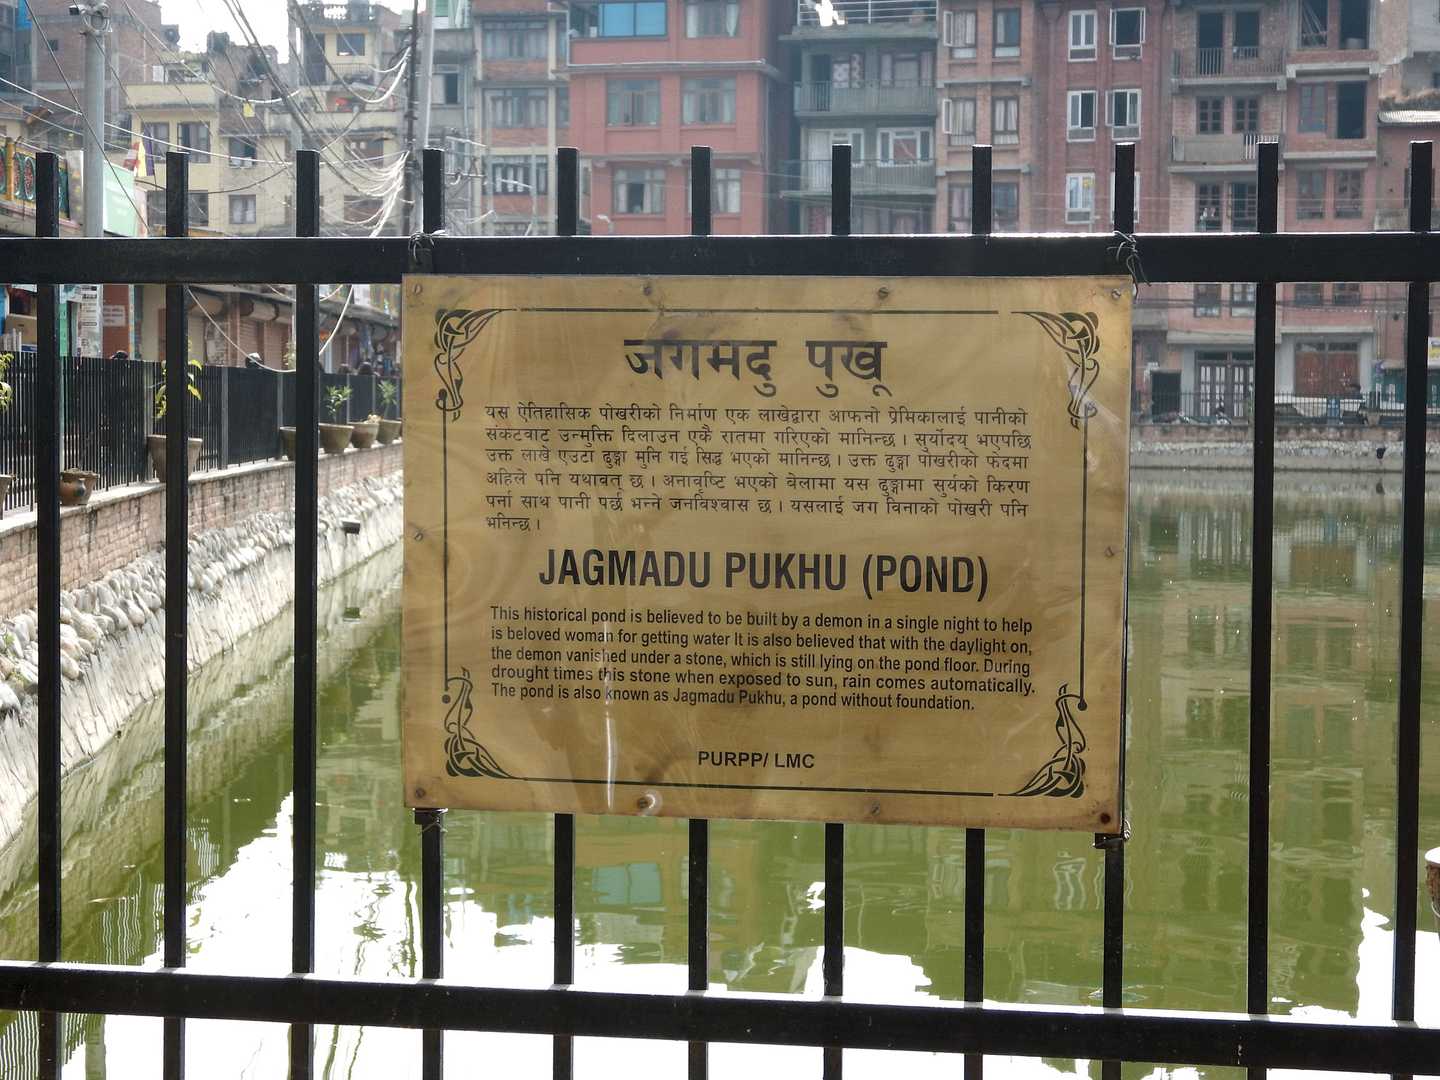 जगमदु पुखू
यस ऐतिहासिक पोखरीको निर्माण एक लाखेद्वारा आफनो प्रेमिकालाई पानीको
संकटवाट उन्मुक्ति दिलाउन एकै रातमा गरिएको मानिन्छ । सुर्योदय भएपछि
उक्त लाखे एउटा ढुङ्गा मुनि गई सिद्ध भएको मानिन्छ । उक्त ढुङ्गा पोखरीको फेदमा
अहिले पनि यथावत् छ । अनावृष्टि भएको वेलामा यस ढुङ्गामा सुर्यको किरण
पर्ना साथ पानी पर्छ भन्ने जनविश्वास छ । यसलाई जग विनाको पोखरी पनि
भनिन्छ ।
JAGMADU PUKHU (POND)
This historical pond is believed to be built by a demon in a single night to help
is beloved woman for getting water It is also believed that with the daylight on,
the demon vanished under a stone, which is still lying on the pond floor. During
drought times this stone when exposed to sun, rain comes automatically.
The pond is also known as Jagmadu Pukhu, a pond without foundation.
PURPP/ LMC